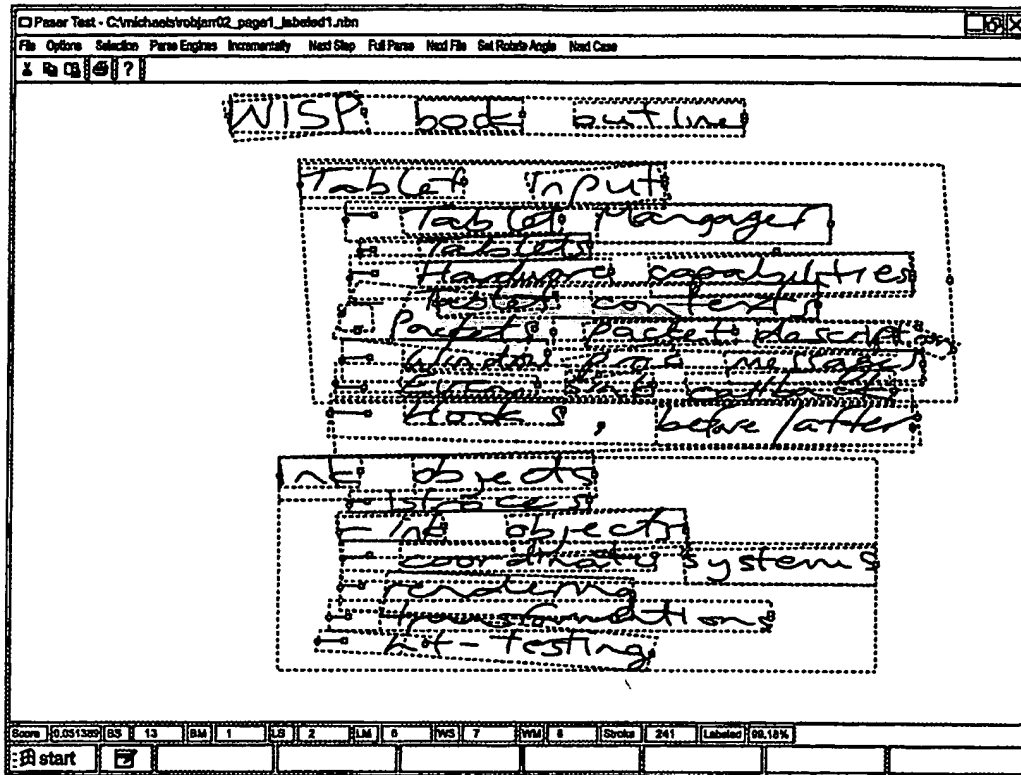 Paser Test - C:\michaels\robjarr02_page1_labeled1.nbn
File Options Selection Parse Engines Incrementally Next Step Full Parse Next File Set Rotate Angle Next Case
?
WISP book outline
Tablet Input
- Tablet Mangager
- Tablets
- Hardware capabilities
- Tablet contexts
- Packets, Packet descriptions
- Window messages
- callback
- Hooks, before/after
Ink objects
- Ink objects
- coordinate systems
- rendering
- transformations
- hit-testing
Score 0.051389 BS 13 BM 1 LS 2 LM 0 WS 7 WM 6 Stroke 241 Labeled 99.18%
start